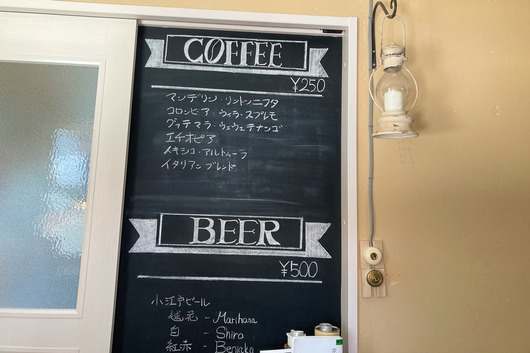 COFFEE
¥250
マンデリン・リントンニフタ
コロンビア・ウィラ・スプレモ
グァテマラ・ウェウェテナンゴ
エチオピア
メキシコ・アルトゥーラ
イタリアンブレンド
BEER
¥500
小江戸ビール
越花 - Marihana
白 - Shiro
紅赤 - Beniaka